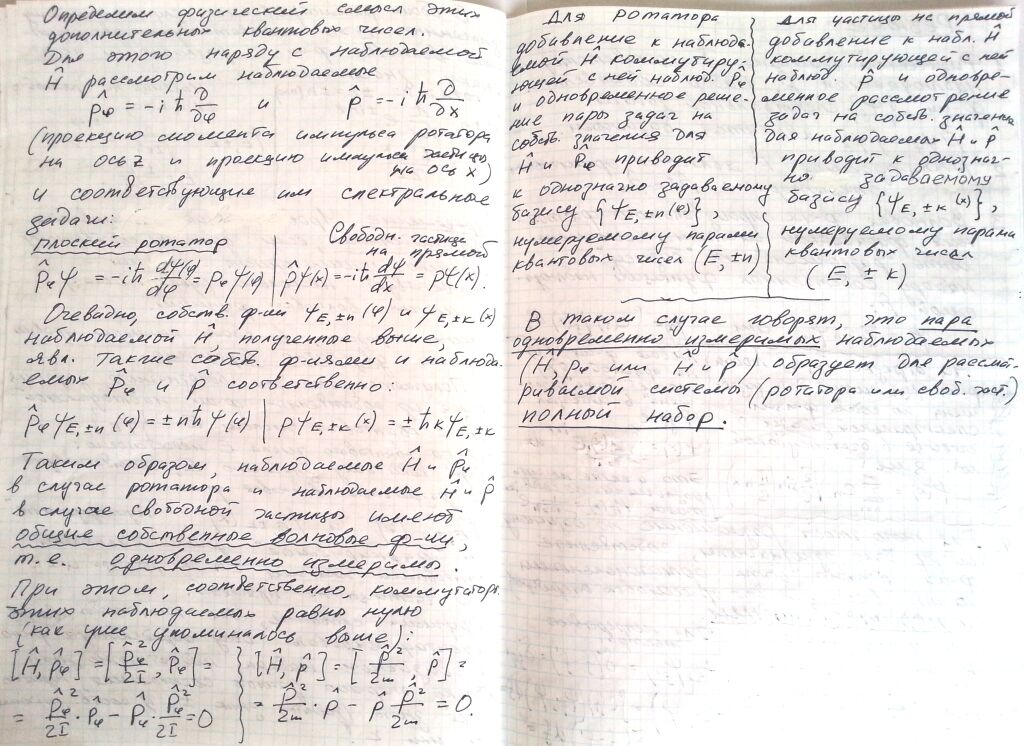 Определим физический смысл этих
дополнительных квантовых чисел.
Для этого наряду с наблюдаемой
Ĥ рассмотрим наблюдаемые
p̂φ = -iħ ∂/∂φ и p̂ = -iħ ∂/∂x
(проекцию момента импульса ротатора
на ось z и проекцию импульса частицы
на ось x)
и соответствующие им спектральные
задачи:
плоский ротатор | Свободн. частица
на прямой
p̂φψ = -iħ dψ(φ)/dφ = pφψ(φ) | p̂ψ(x) = -iħ dψ/dx = pψ(x).
Очевидно, собств. ф-ии ψE,±n(φ) и ψE,±k(x)
наблюдаемой Ĥ, полученные выше,
явл. также собств. ф-иями и наблюда-
емых p̂φ и p̂ соответственно:
p̂φψE,±n(φ) = ±nħψ(φ) | pψE,±k(x) = ±ħkψE,±k
Таким образом, наблюдаемые Ĥ и p̂φ
в случае ротатора и наблюдаемые Ĥ и p̂
в случае свободной частицы имеют
общие собственные волновые ф-ии,
т.е. одновременно измеримы.
При этом, соответственно, коммутаторы
этих наблюдаемых равны нулю
(как уже упоминалось выше):
[Ĥ, p̂φ] = [p̂φ²/2I, p̂φ] = } [Ĥ, p̂] = [p̂²/2m, p̂] =
= p̂φ²/2I · p̂φ - p̂φ · p̂φ²/2I = 0 } = p̂²/2m · p̂ - p̂ p̂²/2m = 0.
Для ротатора
добавление к наблюда-
емой Ĥ коммутиру-
ющей с ней наблюд. p̂φ
и одновременное реше-
ние пары задач на
собств. значения для
Ĥ и p̂φ приводит
к однозначно задаваемому
базису {ψE,±n(φ)},
нумеруемому парами
квантовых чисел (E,±n)
Для частицы на прямой
добавление к набл. Ĥ
коммутирующей с ней
наблюд. p̂ и одновре-
менное рассмотрение
задач на собств. значения
для наблюдаемых Ĥ и p̂
приводит к однознач-
но задаваемому
базису {ψE,±k(x)},
нумеруемому парами
квантовых чисел
(E, ± k)
В таком случае говорят, что пара
одновременно измеримых наблюдаемых
(Ĥ, p̂φ или Ĥ и p̂) образует для рассмат-
риваемой системы (ротатора или своб. част.)
полный набор.